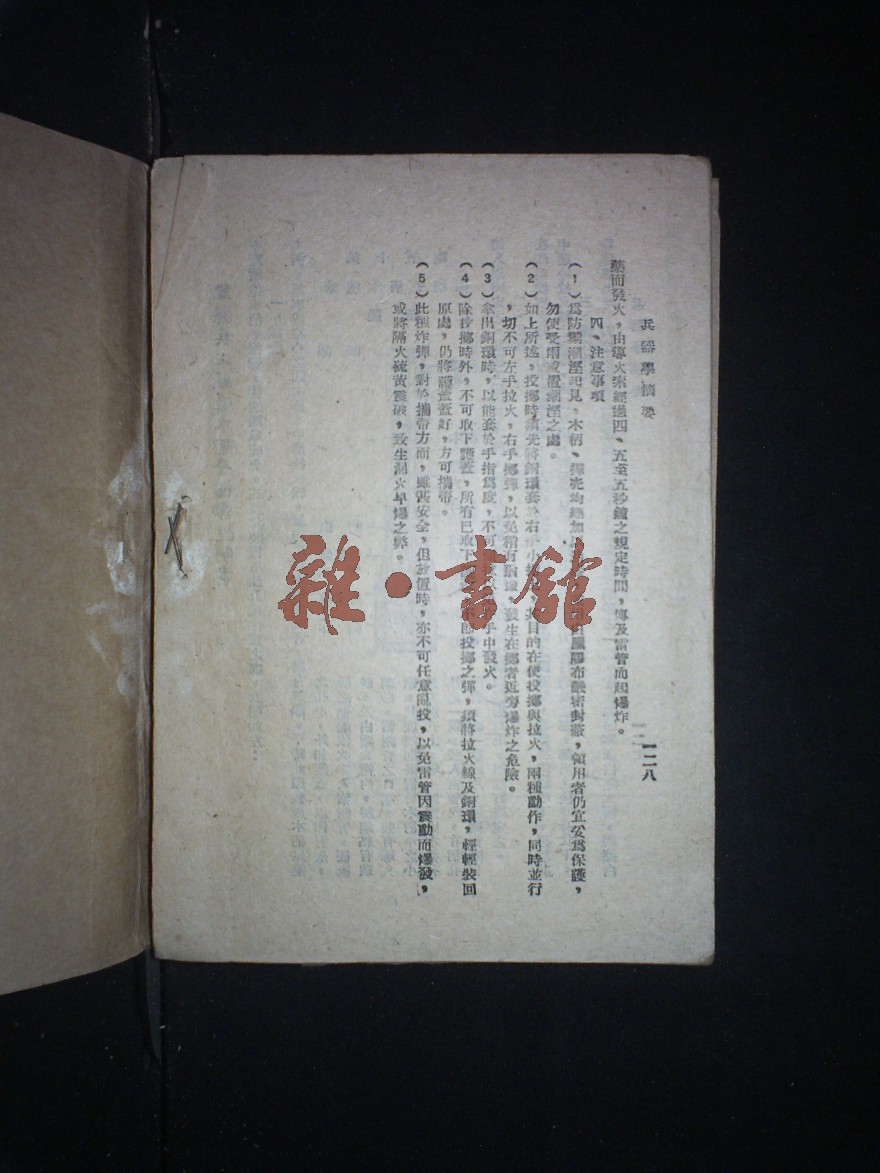 兵器學摘要
一二八
藥而發火,由導火索經過四、五至五秒鐘之規定時間,傳及雷管而起爆炸。
四、注意事項
(1)爲防禦潮溼起見,木柄、彈壳均經加 布嚴密封蔽,領用者仍宜妥爲保護,
勿使受雨或置潮溼之處。
(2)如上所述,投擲時須先將銅環套於右手小 其目的在使投擲與拉火,兩種動作,同時並行
,切不可左手拉火,右手擲彈,以免稍有 發生在擲者近旁爆炸之危險。
(3)拿出銅環時,以能套於手指爲度,不可 手中發火。
(4)除投擲時外,不可取下護蓋,所有已取下 即投擲之彈,須將拉火線及銅環,輕輕裝回
原處,仍將護蓋蓋好,方可攜帶。
(5)此種炸彈,對於攜帶方面,雖甚安全,但放置時,亦不可任意亂投,以免雷管因震動而爆發,
或將隔火硫黃震破,致生漏火早爆之弊。
雜·書館